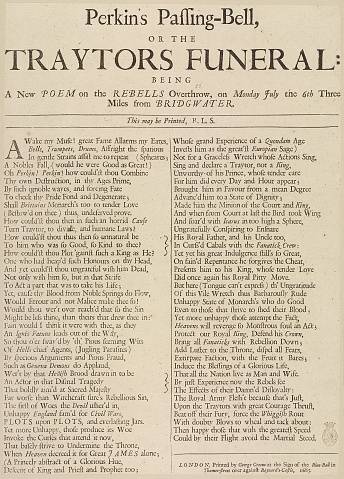 Perkin's Passing-Bell,
OR THE
TRAYTORS FUNERAL:
BEING
A New POEM on the REBELLS Overthrow, on Monday July the 6th Three
Miles from BRIDGWATER.
This may be Printed, R. L. S.
AWake my Muse! great Fame Allarms my Eares,
Bells, Trumpets, Drums, Affright the spatious Sphears;
In gentle Strains assist me to repeat
A Nobles Fall, (would he were Good as Great!)
Oh Perkin! Perkin! how could'st thou Combine
Thy own Destruction, in thy Apes Prime,
By such ignoble wayes, and forcing Fate
To check thy Pride Fond and Degenerate;
Shall Brittains Monarch's too to Love
(Bestow'd on thee) thus, undeserved prove.
How could'st thou then in such an horrid Cause
Turn Traytor, to divide, and humane Laws?
How could'st thou thus then so unnatural be
To him who was so Good, so Kind to thee?
How could'st thou Plot 'gainst such a King as He
One who had heap'd such Honours on thy Head,
And yet could'st thou ungrateful wish him Dead,
Not only wish him so, but in that Strife
To Act a part that was to take his Life;
Yet, cause thy Blood from Noble Springs do Flow,
Would Favour and not Malice make thee so!
Would thou wer't over reach'd that so the Sin
Might be less thine, than theirs that drew thee in:
Fain would I think it were with thee, as they
An Ignis Fatuus leads out of the Way,
So thou o're heard by th' Pious seeming Wits
Of Hell-cheat Agents, (Jugling Parasites)
By specious Arguments and Pious Fraud,
Such as Geneva Donnes do Applaud,
Wer't by that Hellish Brood drawn in to be
An Actor in that Dismal Tragedy
That boldly aim'd at Sacred Majesty
Far worse than Witchcraft fires Rebellious Sin,
The first of Woes the Devil usher'd in,
Unhappy England fam'd for Civil Wars,
PLOTS upon PLOTS, and everlasting Jars.
Yet more Unhappy, those produce its Woe
Invoke the Curses that attend it now,
That basely strive to Undermine the Throne,
When Heaven decreed it for Great JAMES alone;
(A Princely abstract of a Glorious Hue,
Descent of King and Priest and Prophet too;
Whose grand Experience of a Quondam Age
Invests him as the great'st European Sage)
Not for a Graceless Wretch whose Actions Sing,
Sing and declare a Traytor, not a King,
Unworthy of his Prince, whose tender care
For him did every Day and Hour appear;
Brought him in Favour from a mean Degree
Advanc'd him to a State of Dignity;
Made him the Minion of the Court and King,
And when from Court at last the Bird took Wing
And soar'd with Icarus in too high a Sphere,
Ungratefully Conspiring to Ensnare
His Royal Father, and his Uncle too,
In Curss'd Cabals with the Fanatick Crew:
Yet yet his great Indulgence still so Great,
On fain'd Repentance he forgives the Cheat,
Presents him to his King, whose tender Love
Did once again his Royal Pitty Move.
But here (Tongue can't express) th' Ungratitude
Of this Vile Wretch thus Barbarously Rude
Unhappy State of Monarch's who do Good
Even to those that strive to shed their Blood,
Yet more unhappy those attempt the Fact,
Heavens will revenge so Monstrous foul an Act;
Protect our Royal King, Defend his Crown,
Bring all Fanaticks with Rebellion Down;
Add Lustre to the Throne, dispel all Fears,
Extirpate Faction, with the Fruit it Bares;
Induce the Blessings of a Glorious Life,
That all the Nation live as Man and Wife.
By just Experience now the Rebels fee
The Effects of their Damn'd Disloyalty;
The Royal Army Flesh't because that's Just,
Upon the Traytors with great Courage Thrust,
Beat off their Fury, force the Whiggish Rout
With doubty Blows to wheel and tack about;
Then happy those that with the greatest Speed
Could by their Flight avoid the Martial Steed.
LONDON, Printed by George Croom at the Sign of the Blue-Ball in
Thames-street over against Baynard's-Castle, 1685.